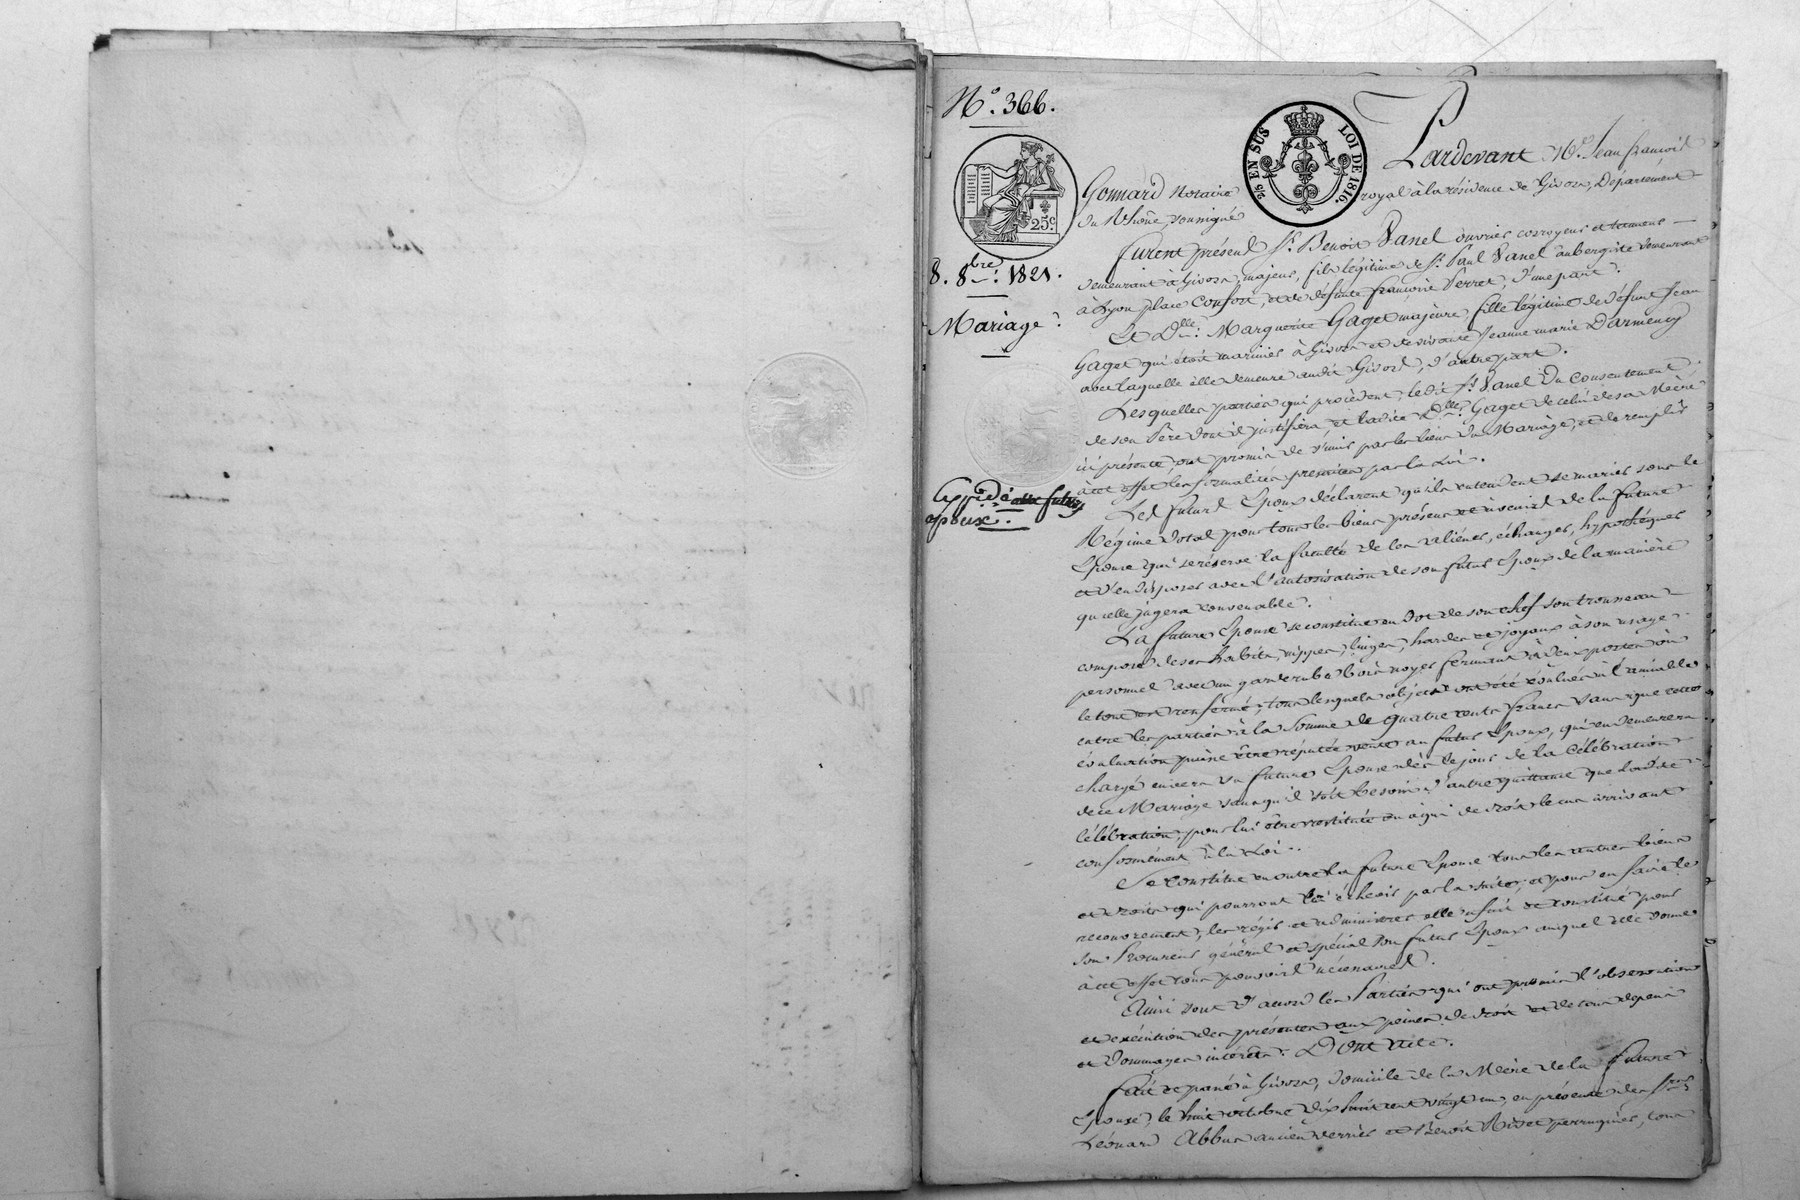 N.º 366.
2/5 EN SUS LOI DE 1816.
25.c
8. 8bre. 1821.
Mariage.
Expédié aux futurs
époux.
Pardevant Me. Jean François
Gonnard Notaire royal à la résidence de Givors, Département
du Rhône, soussigné
furent présens Sr. Benoit Vanel ouvrier corroyeur et tanneur
demeurant à Givors, majeur, fils légitime de Sr. Paul Vanel aubergiste demeurant
à Lyon place Confort, et de défunte françoise Perret, d'une part.
Et Dlle. Marguerite Gaget majeure, fille légitime de défunt Jean
Gaget qui étoit marinier à Givors et de vivante Jeanne marie Darmency
avec laquelle elle demeure audit Givors, d'autre part.
Lesquelles parties qui procèdent, ledit Sr. Vanel du Consentement
de son Père dont il justifiera, et ladite Dlle. Gaget de celui de sa Mère
ici présente, ont promis de s'unir par les liens du Mariage, et de remplir
à cet effet les formalités prescrites par la Loi.
Les futurs Epoux déclarent qu'ils entendent se marier sous le
Régime dotal pour tous les biens présens et à venir de la future
Epouse qui se réserve la faculté de les aliéner, échanger, hypothéquer
et d'en disposer avec l'autorisation de son futur Epoux de la manière
qu'elle jugera convenable.
La future Epouse se constitue en dot de son chef son trousseau
composé de ses habits, nippes, linges, hardes et joyaux à son usage
personnel avec un garderobe bois noyer fermant à deux portes où
le tout est renfermé; tous lesquels objets ont été évalués à l'amiable
entre les parties à la Somme de quatre cents francs sans que cette
évaluation puisse être réputée vente au futur Epoux, qui en demeurera
chargé envers sa future Epouse dès le jour de la Célébration
de ce Mariage sans qu'il soit besoin d'autre quittance que ladite
célébration, pour lui être restituée ou à qui de droit le cas arrivant
conformément à la Loi.
Se constitue en outre la future Epouse tous les autres biens
et droits qui pourront lui échoir par la suite; et pour en faire le
recouvrement, les régir et administrer elle a fait et constitué pour
son Procureur général et spécial son futur Epoux auquel elle donne
à cet effet tous pouvoirs nécessaires.
Ainsi sont d'accord les Parties qui ont promis l'observation
et exécution des présentes aux peines de droit et de tous dépens
et dommages intérêts. Dont acte.
Fait et passé à Givors, domicile de la Mère de la future
Epouse, le huit octobre dix huit cent vingt un, en présence des Srs.
Léonard Abbus ancien verrier et Benoit Rivet perruquier, tous